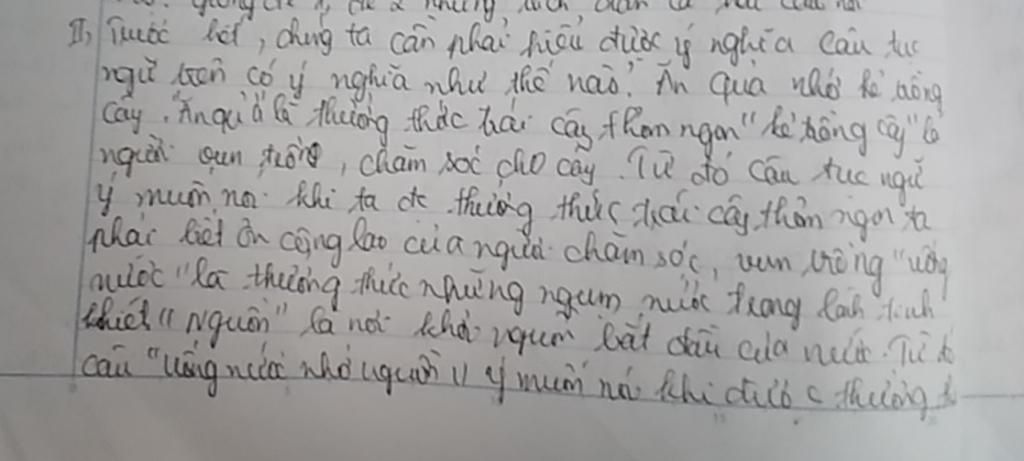 II, Trước hết, chúng ta cần phải hiểu được ý nghĩa câu tục
ngữ trên có ý nghĩa như thế nào? Ăn quả nhớ kẻ trồng
cây. "Ăn quả" là thưởng thức trái cây thơm ngon "kẻ trồng cây" là
người vun trồng, chăm sóc cho cây. Từ đó câu tục ngữ
ý muốn nói khi ta đc thưởng thức trái cây thơm ngon ta
phải biết ơn công lao của người chăm sóc, vun trồng "uống
nước" là thưởng thức những ngụm nước trong lành tinh
khiết "Nguồn" là nơi khởi nguồn bắt đầu của nước. Từ đó
câu "uống nước nhớ nguồn" ý muốn nói khi được thưởng